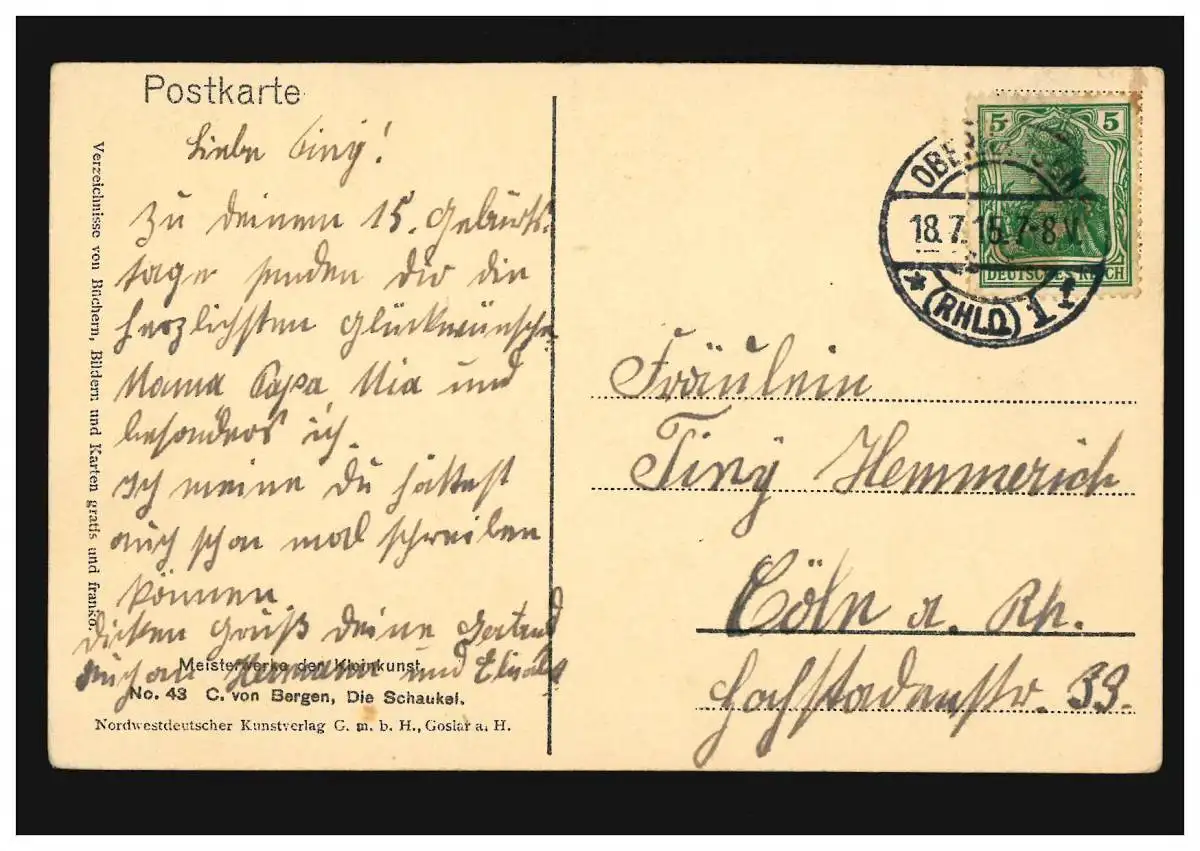 Postkarte
Liebe Tiny!
Zu deinem 15. Geburts-
tage senden Dir die
herzlichsten Glückwünsche
Mama Papa Mia und
besonders ich.
Ich meine Du hättest
auch schon mal schreiben
können.
Dicken Gruß deine Gertrud
auch an Hermann und Elisabet
Meisterwerke der Kleinkunst.
No. 43 C. von Bergen, Die Schaukel.
Nordwestdeutscher Kunstverlag G. m. b. H., Goslar a. H.
Verzeichnisse von Büchern, Bildern und Karten gratis und franko.
5 5
DEUTSCHES REICH
18.7.15.7-8V.
* (RHLD) 1 f *
Fräulein
Tiny Hemmerich
Cöln a. Rh.
Hochstadenstr. 33.